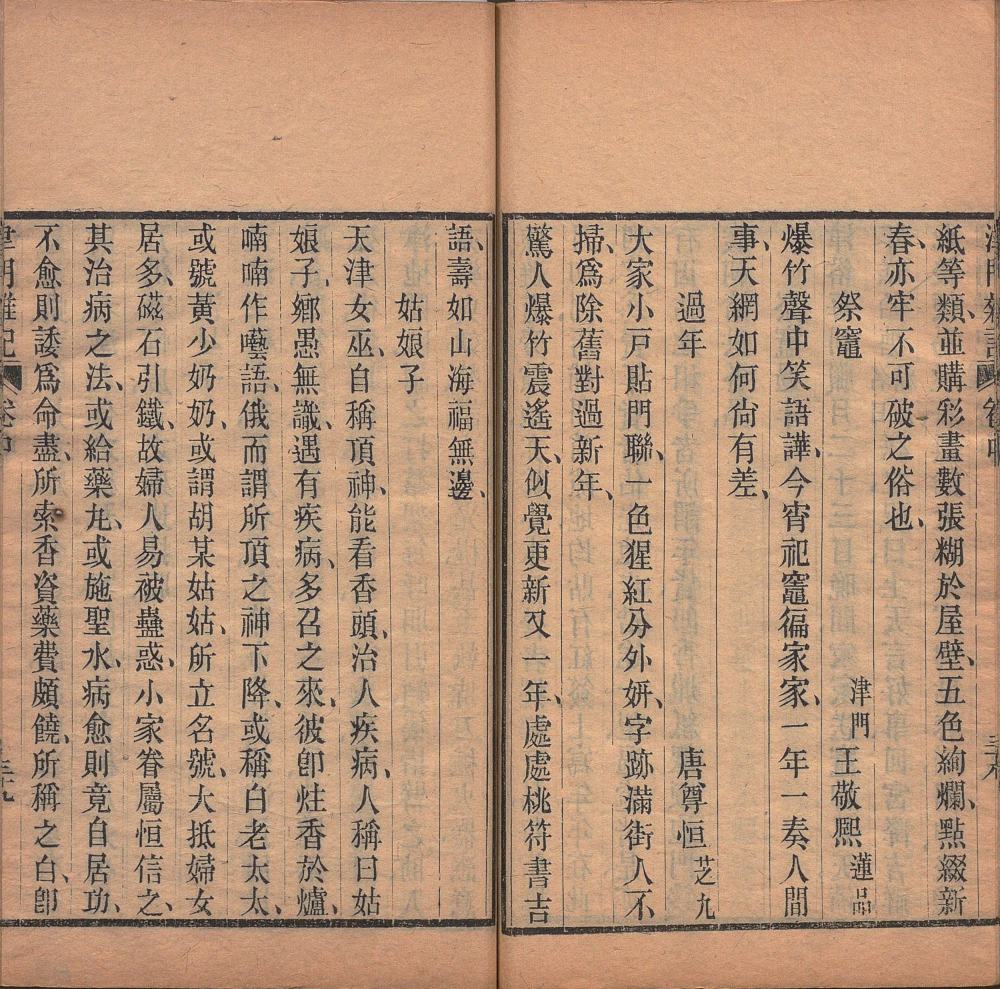 津門雜記 卷中 三十八
紙等類、並購彩畫數張糊於屋壁、五色絢爛、點綴新
春、亦牢不可破之俗也、
祭竈 津門王敬熙蓮品
爆竹聲中笑語譁、今宵祀竈徧家家、一年一奏人間
事、天網如何尙有差、
過年 唐尊恒芝九
大家小戸貼門聯、一色猩紅分外妍、字跡滿街人不
掃、爲除舊對過新年、
驚人爆竹震遙天、似覺更新又一年、處處桃符書吉
語、壽如山海福無邊、
姑娘子
天津女巫、自稱頂神、能看香頭、治人疾病、人稱曰姑
娘子、鄉愚無識、遇有疾病、多召之來、彼卽炷香於爐、
喃喃作囈語、俄而謂所頂之神下降、或稱白老太太、
或號黃少奶奶、或謂胡某姑姑、所立名號、大抵婦女
居多、磁石引鐵、故婦人易被蠱惑、小家眷屬恒信之、
其治病之法、或給藥丸、或施聖水、病愈則竟自居功、
不愈則諉爲命盡、所索香資藥費頗饒、所稱之白、卽
津門雜記 卷中 三十九